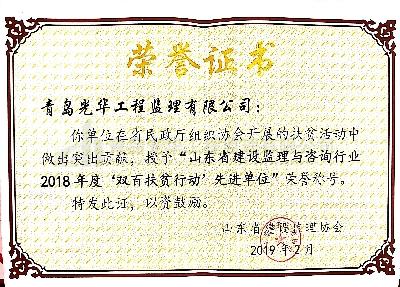 荣誉证书
青岛光华工程监理有限公司：
你单位在省民政厅组织协会开展的扶贫活动中
做出突出贡献，授予“山东省建设监理与咨询行业
2018年度‘双百扶贫行动’先进单位”荣誉称号。
特发此证，以资鼓励。
山东省建设监理协会
2019年2月